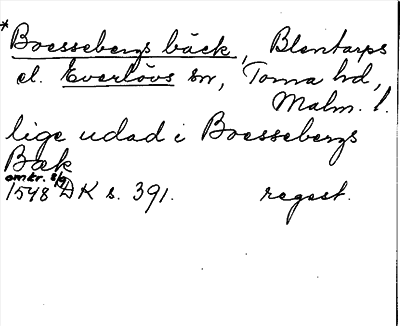 * Boessebergs bäck, Blentarps
el. Everlövs sn, Torna hd,
Malm. l.
lige udad i Boessebergs
Bæk
omkr. 8/9
1548 DK s. 391. regest.